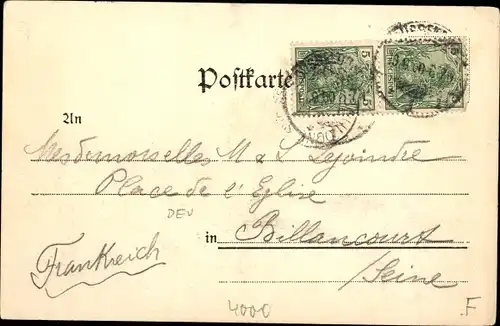 Postkarte
An
Mesdemoiselles M & L Lejoindre
Place de l'Eglise
DEV
in Billancourt
Frankreich
/Seine
4000
F
5
5